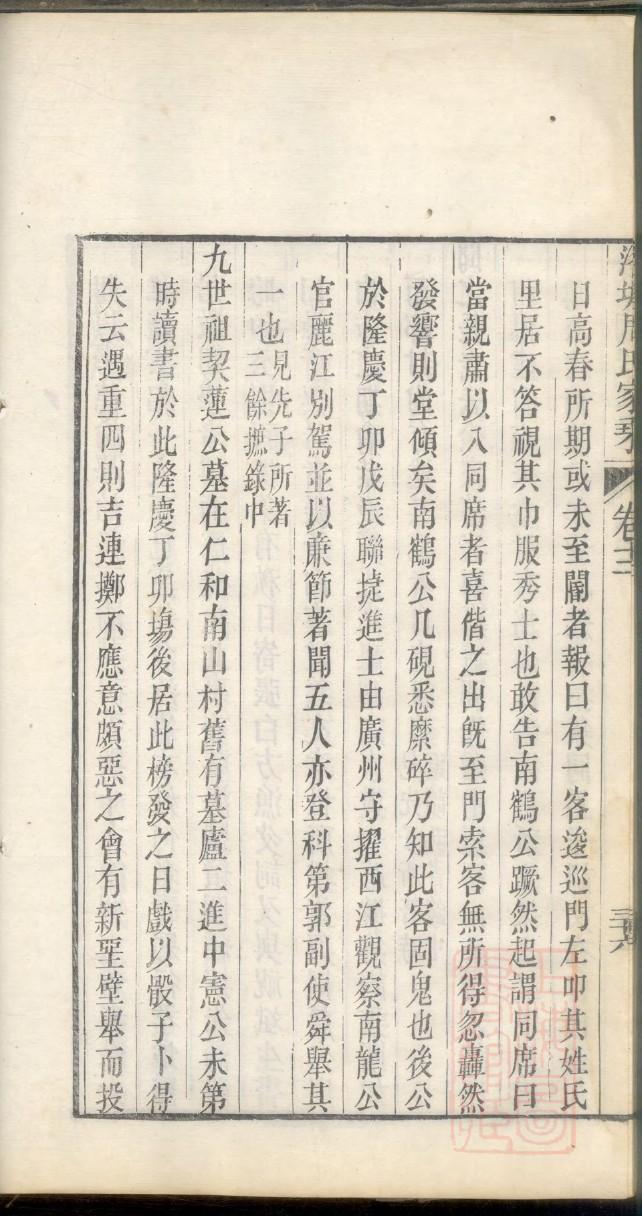 海堧周氏家乘 卷十二 三十六
日高舂所期或未至閽者報曰有一客逡巡門左叩其姓氏
里居不答視其巾服秀士也敢告南鶴公蹶然起謂同席曰
當親肅以入同席者喜偕之出旣至門索客無所得忽轟然
發響則堂傾矣南鶴公几硯悉縻碎乃知此客固鬼也後公
於隆慶丁卯戊辰聯捷進士由廣州守擢西江觀察南龍公
官麗江別駕並以亷節著聞五人亦登科第郭副使舜舉其
一也見先子所著
三餘摭錄中
九世祖契蓮公墓在仁和南山村舊有墓廬二進中憲公未第
時讀書於此隆慶丁卯塲後居此榜發之日戲以骰子卜得
失云遇重四則吉連擲不應意頗惡之會有新堊壁舉而投